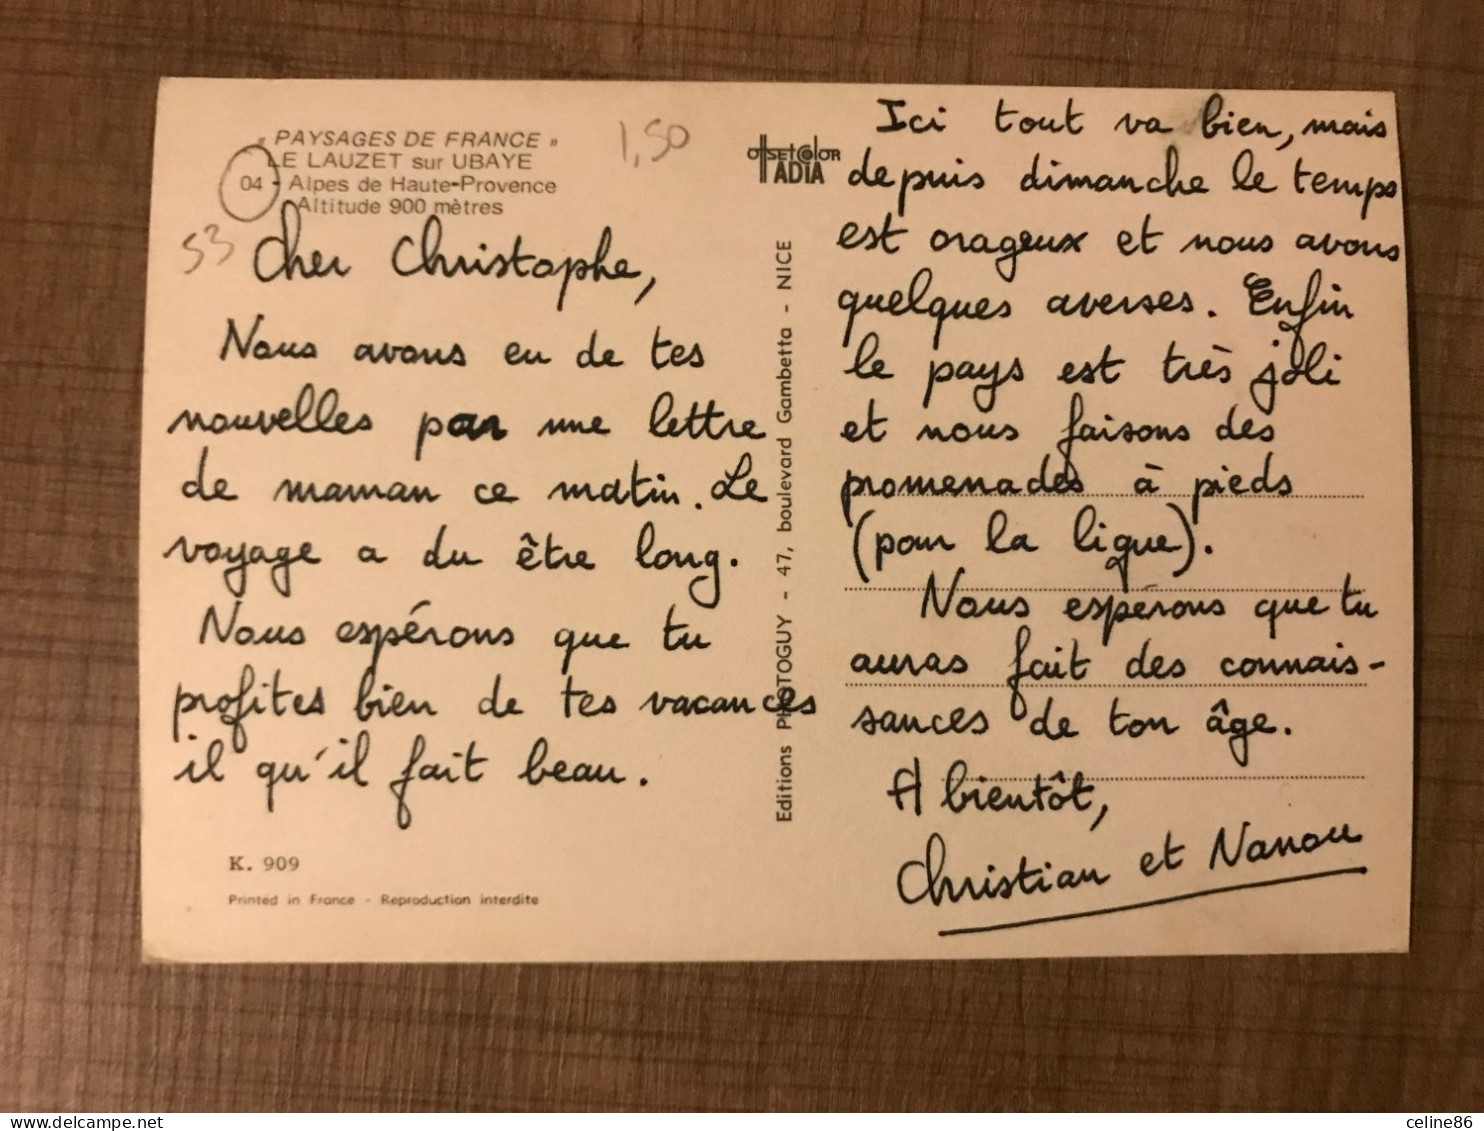 « PAYSAGES DE FRANCE »
LE LAUZET sur UBAYE
04 - Alpes de Haute-Provence
Altitude 900 mètres
1,50
53
Cher Christophe,
Nous avons eu de tes
nouvelles par une lettre
de maman ce matin. Le
voyage a du être long.
Nous espérons que tu
profites bien de tes vacances
il qu'il fait beau.
K. 909
Printed in France - Reproduction interdite
OffSETCOlOR
ADIA
Editions PHOTOGUY - 47, boulevard Gambetta - NICE
Ici tout va bien, mais
depuis dimanche le temps
est orageux et nous avons
quelques averses. Enfin
le pays est très joli
et nous faisons des
promenades à pieds
(pour la ligue).
Nous espérons que tu
auras fait des connais-
sances de ton âge.
A bientôt,
Christian et Nanou
celine86